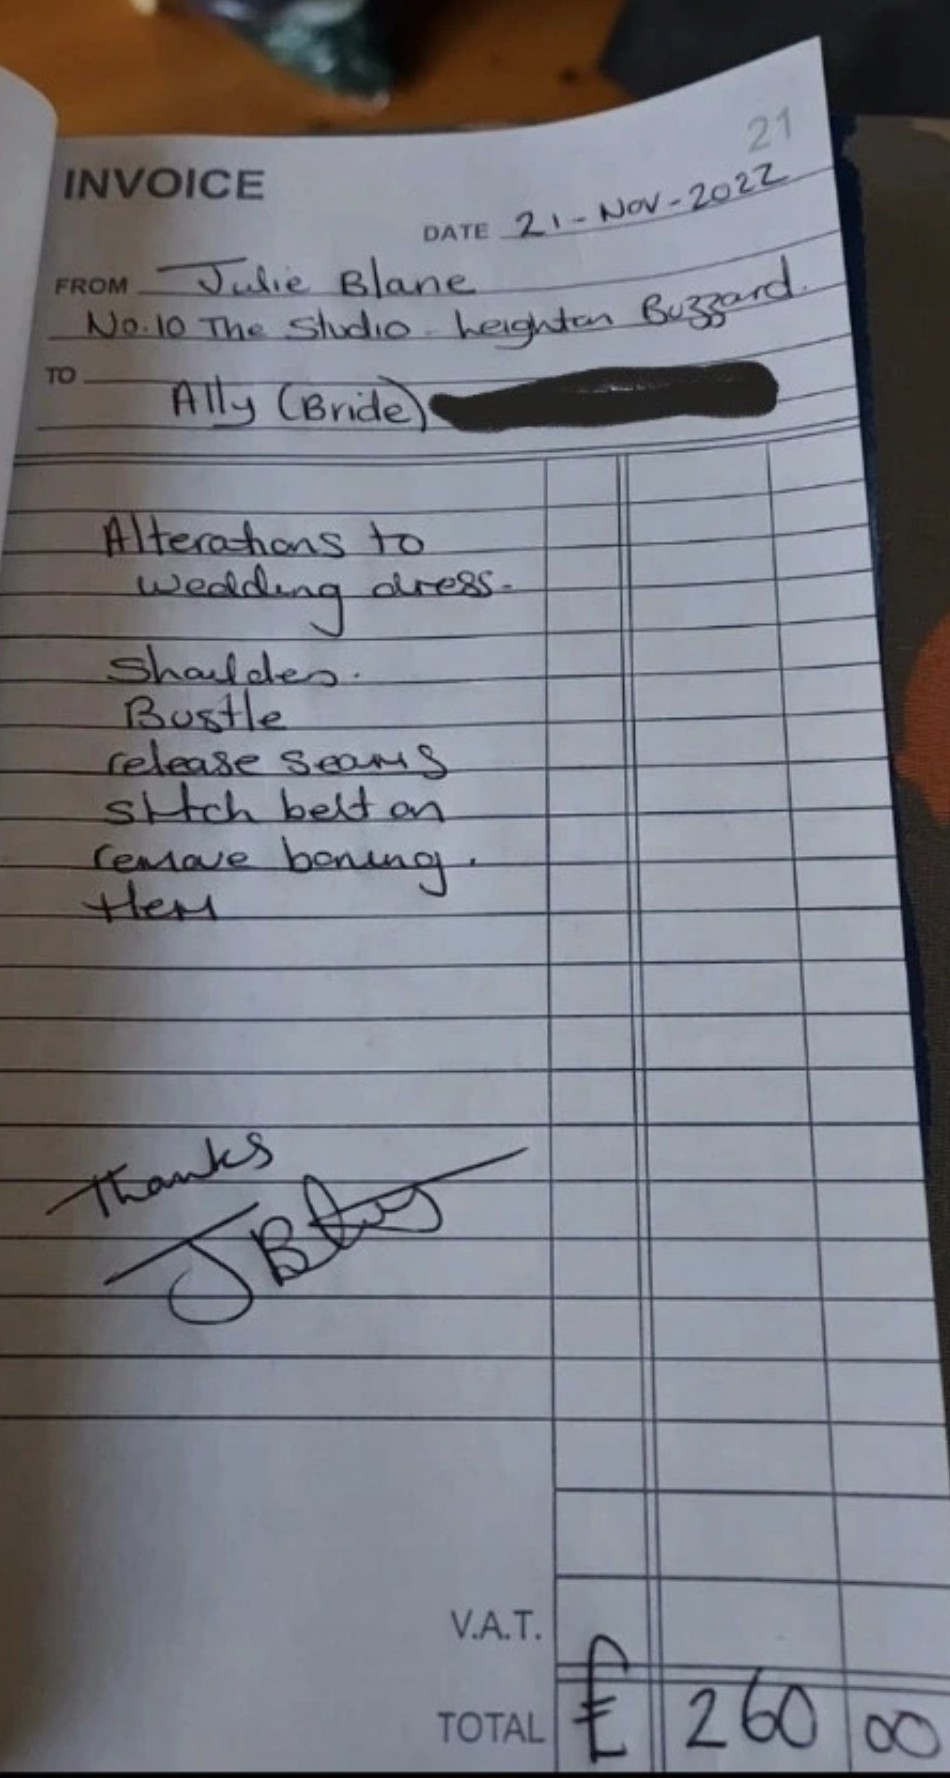 21
INVOICE
DATE 21-Nov-2022
FROM Julie Blane
No.10 The Studio - Leighton Buzzard.
TO
Ally (Bride)
Alterations to
wedding dress-
Shoulders.
Bustle
release seams
stitch belt on
remove boning.
Hem
Thanks
V.A.T.
TOTAL £ 260 00